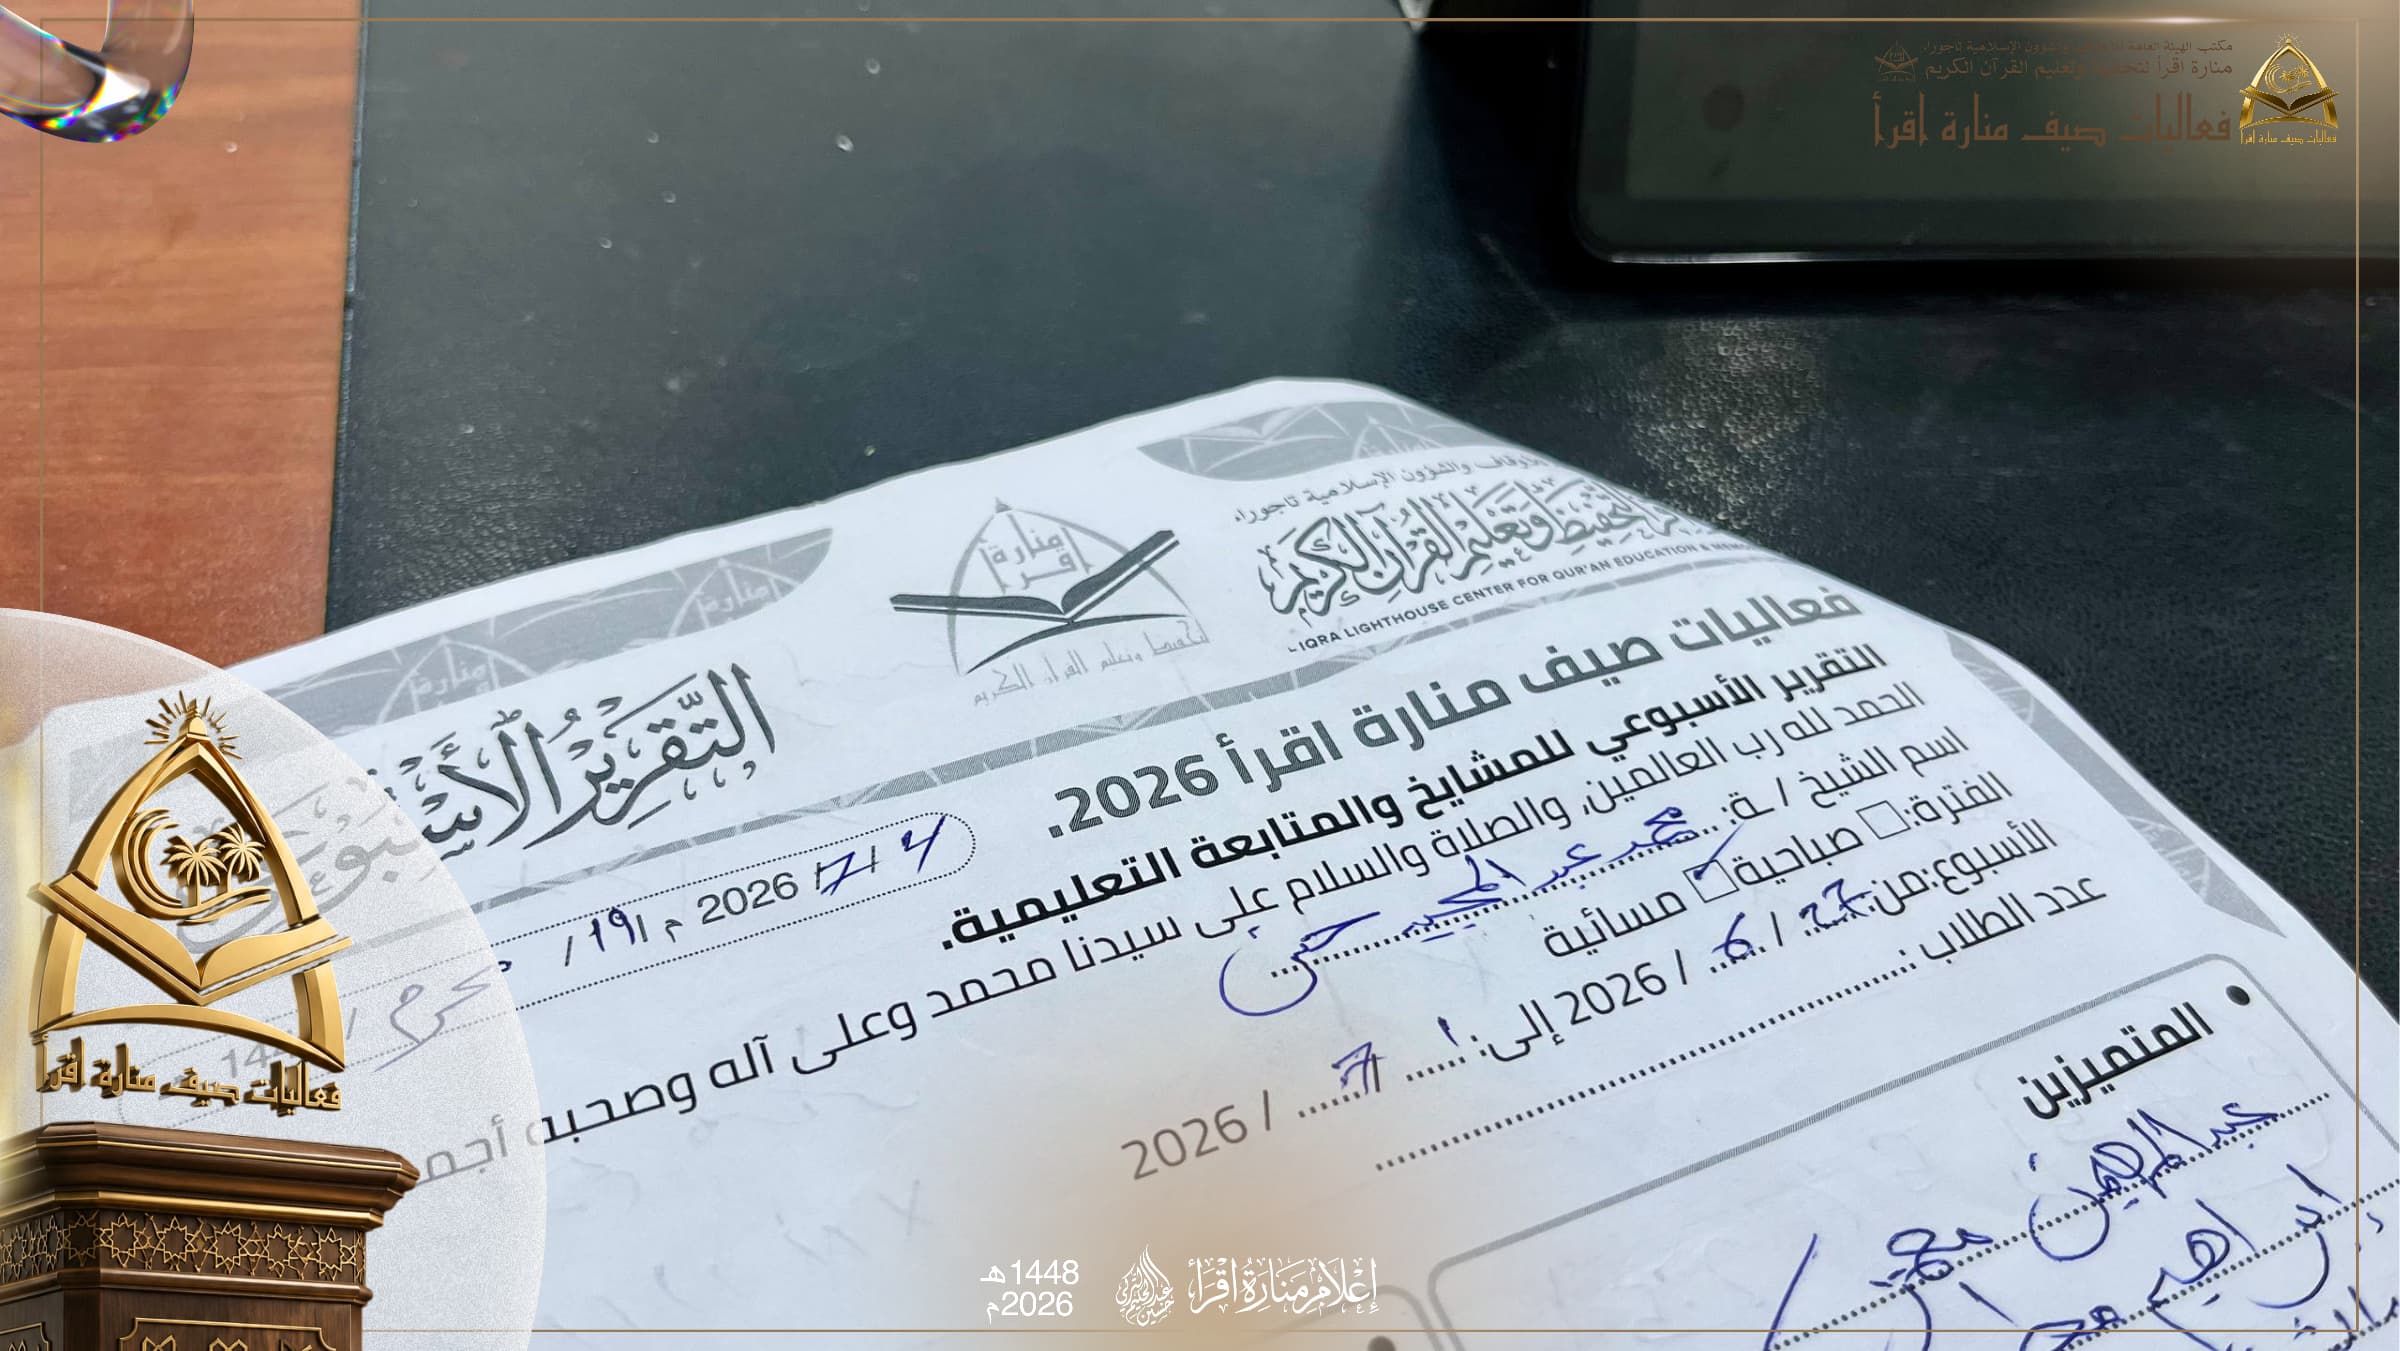 مكتب الهيئة العامة للأوقاف والشؤون الإسلامية تاجوراء
منارة اقرأ لتحفيظ وتعليم القرآن الكريم
فعاليات صيف منارة اقرأ
فعاليات صيف منارة اقرأ
للأوقاف والشؤون الإسلامية تاجوراء
لتحفيظ وتعليم القرآن الكريم
IQRA LIGHTHOUSE CENTER FOR QUR'AN EDUCATION &
منارة اقرأ
لتحفيظ وتعليم القرآن الكريم
التقرير الأسبوعي
4 / 7 / 2026 م | 19 / محرم / 144
فعاليات صيف منارة اقرأ 2026.
التقرير الأسبوعي للمشايخ والمتابعة التعليمية.
الحمد لله رب العالمين، والصلاة والسلام على سيدنا محمد وعلى آله وصحبه أجم
اسم الشيخ / ـة: محمد عبد
الفترة: صباحية مسائية
الأسبوع: من: 27 / 6 / 2026 إلى: 1 / 7 / 2026
عدد الطلاب :
• المتميزين
عبد المهيمن
إبراهيم
فعاليات صيف منارة اقرأ
إعلام منارة اقرأ
1448هـ
2026م